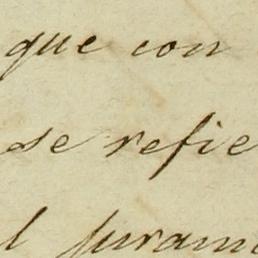 que con
se refie
l juram